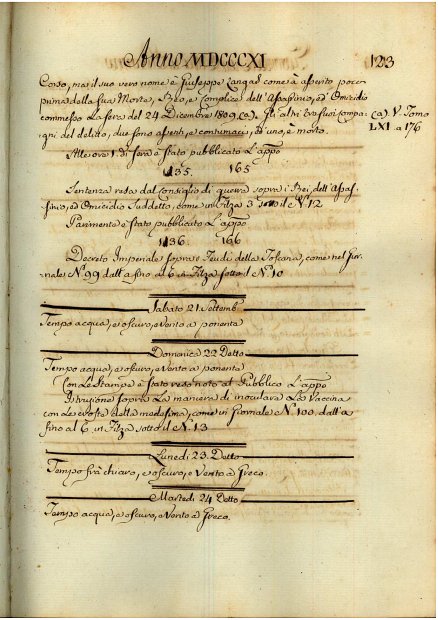 Anno MDCCCXI 123
Corso, ma il suo vero nome è Giuseppe Zanga d come à asserito poco
prima della sua Morte, Reo, e Complice dell'Assassinio, ed Omicidio
commesso La sera del 24 Dicembre 1809 (a). Gli altri tre suoi compa-
gni del delitto, due sono assenti, e contumaci, ed uno, è morto.
(a). V. Tomo
LXI. a 176
Alle ore 1. di sera è stato pubblicato L'appo
1135. 165
Sentenza resa dal Consiglio di guerra sopra i Rei, dell'Assas-
sinio, ed Omicidio Suddetto, come in Filza 3 sotto il N. 12
Parimente è stato pubblicato L'appo
1136. 166
Decreto Imperiale sopra i Feudi della Toscana, come nel Gior-
nale N. 99 dall'a fino al 6 in Filza sotto il N. 10
Sabato 21 Settemb.
Tempo acqua, e oscuro, e Vento a ponente
Domenica 22 Detto
Tempo acqua, e oscuro, e Vento a ponente
Con Le Stampe è stato reso noto al Pubblico L'appo
Istruzione sopra La maniera di inoculare La Vaccina
con Le croste della medesima, come in Giornale N. 100, dall'a
fino al 6 in Filza sotto il N. 13
Lunedi 23. Detto
Tempo fra chiaro, e oscuro, e Vento a Greco
Martedi 24 Detto
Tempo acqua, e oscuro, e Vento a Greco.